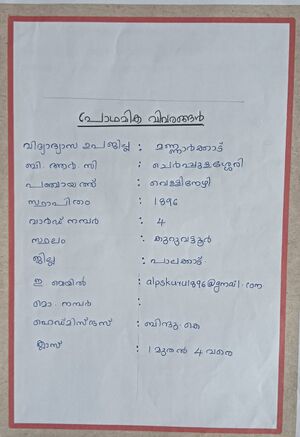 പ്രാഥമിക വിവരങ്ങൾ
വിദ്യാഭ്യാസ ഉപജില്ല : മണ്ണാർക്കാട്
ബി. ആർ. സി : ചെർപ്പുളശ്ശേരി
പഞ്ചായത്ത് : വെള്ളിനേഴി
സ്ഥാപിതം : 1896
വാർഡ് നമ്പർ : 4
സ്ഥലം : കുറുവട്ടൂർ
ജില്ല : പാലക്കാട്
ഇ മെയിൽ : alpskuru1896@gmail.com
മൊ. നമ്പർ :
ഹെഡ്മിസ്ട്രസ് : ബിന്ദു. കെ
ക്ലാസ് : 1 മുതൽ 4 വരെ